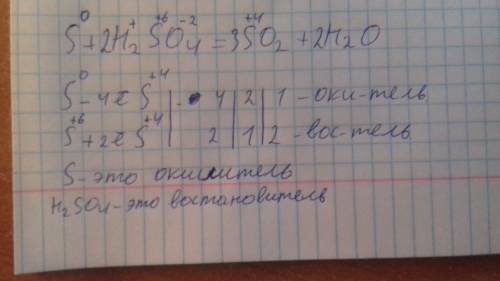 S⁰ + 2H₂⁺S⁺⁶O₄⁻² = 3S⁺⁴O₂ + 2H₂O
S⁰ - 4e̅ S⁺⁴ | 4 | 2 | 1 - оки-тель
S⁺⁶ + 2e̅ S⁺⁴ | 2 | 1 | 2 - вос-тель
S - это окислитель
H₂SO₄ - это востановитель